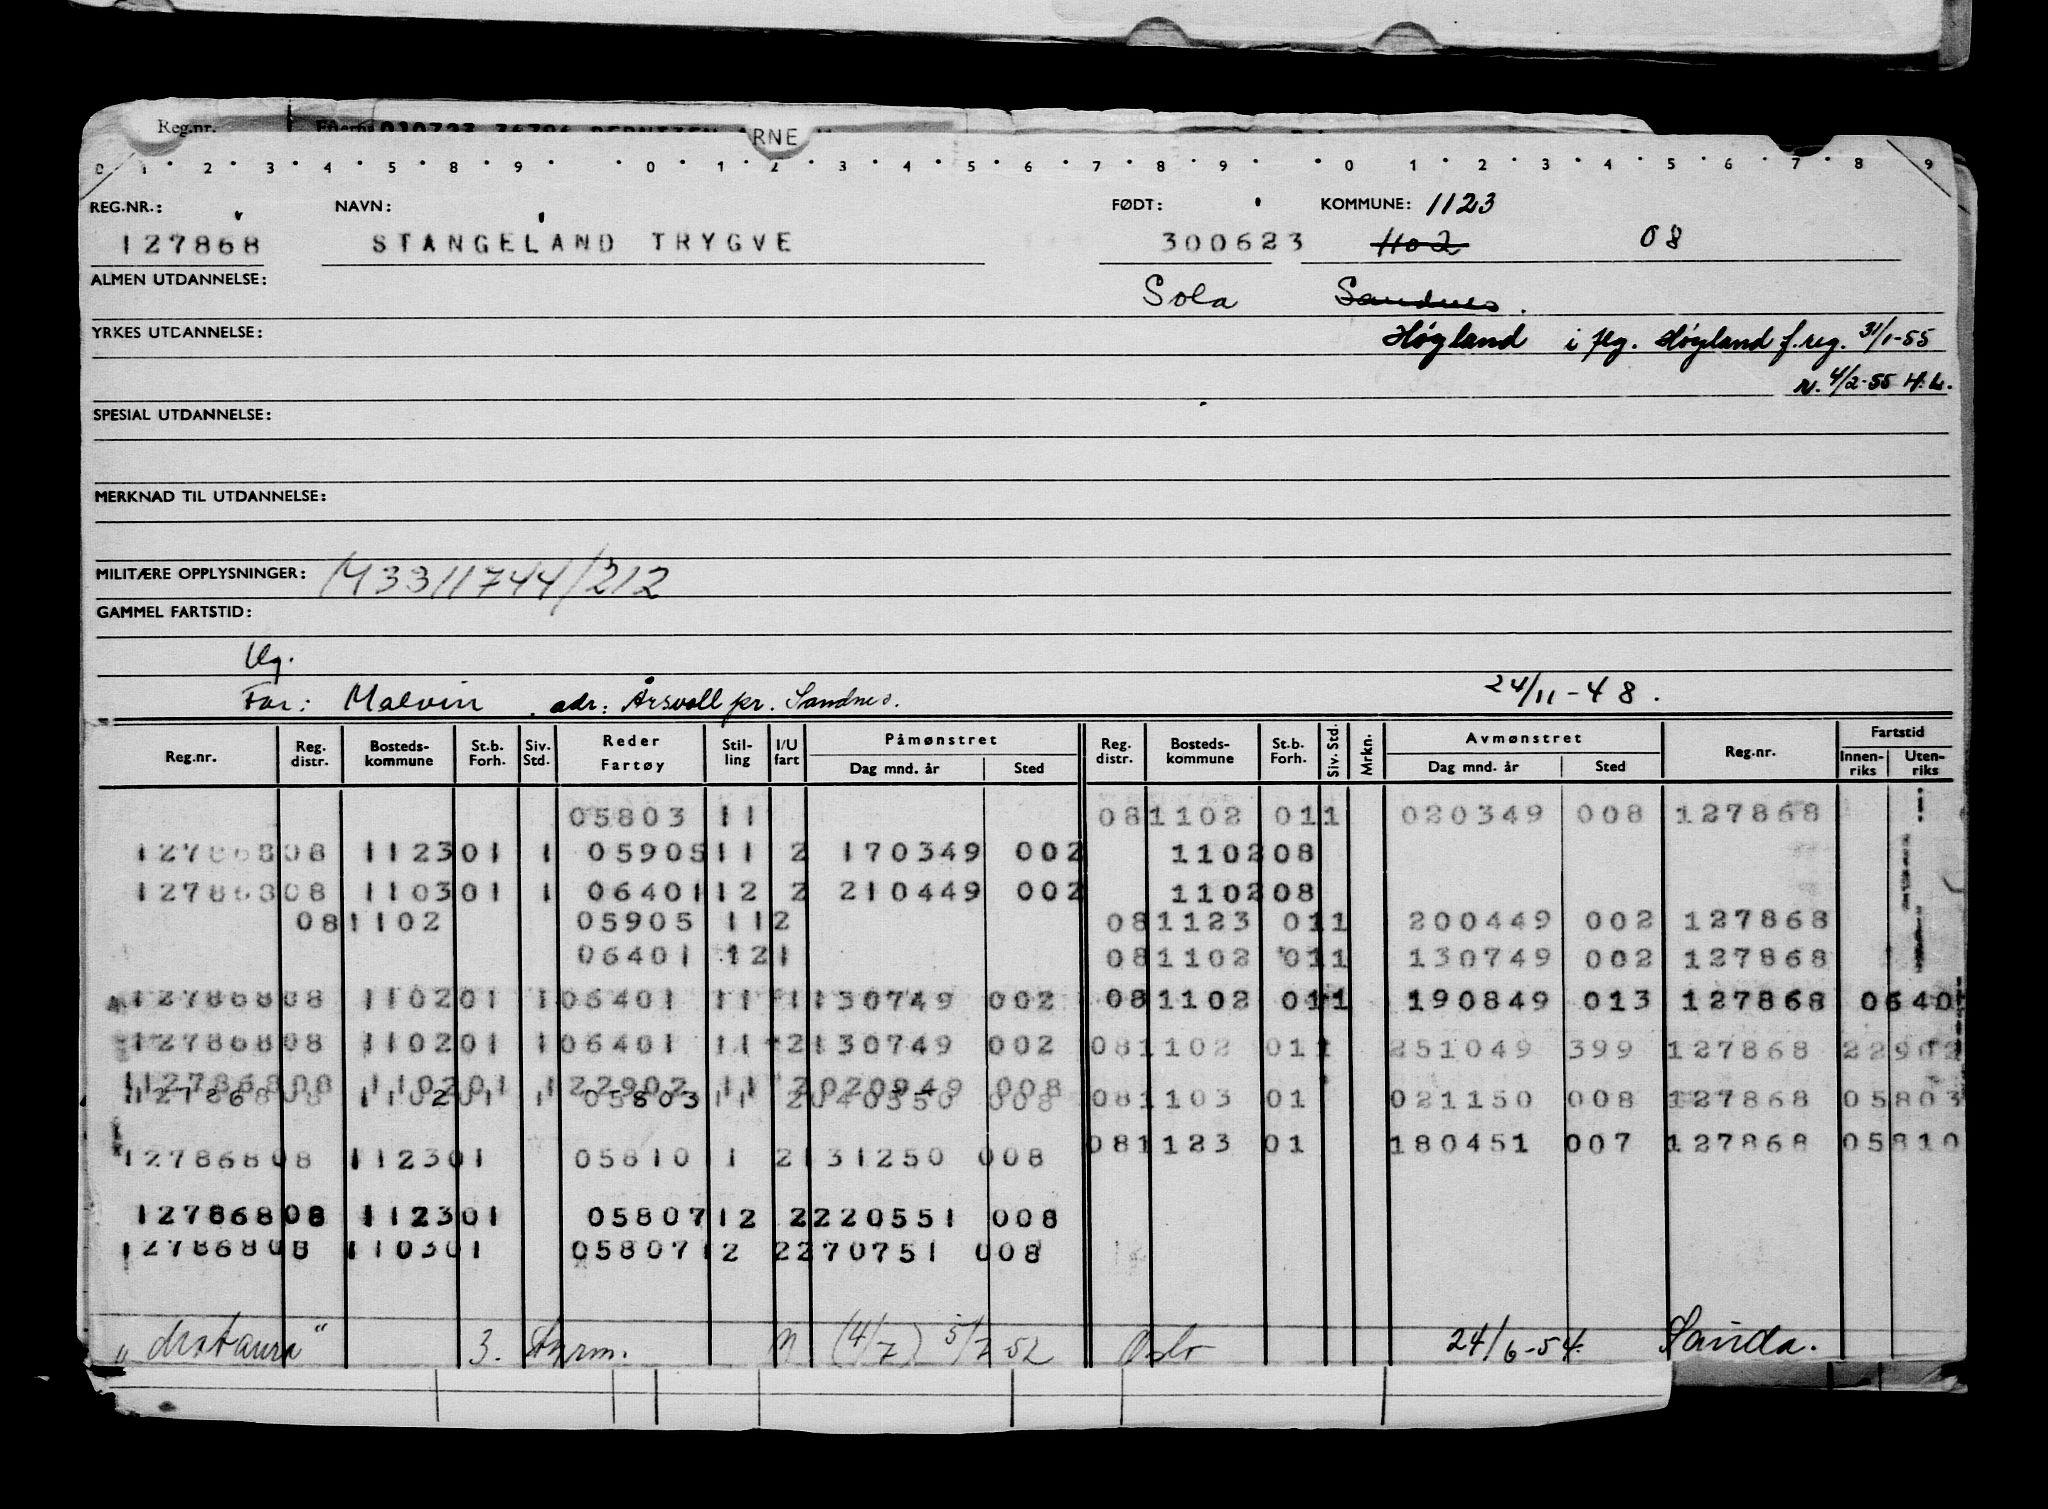 Reg.nr. ARNE
0 1 2 3 4 5 8 9 0 1 2 3 4 5 6 7 8 9 0 1 2 3 4 5 6 7 8 9
REG.NR.: NAVN: FØDT: KOMMUNE: 1123
127868 STANGELAND TRYGVE 300623 1102 08
ALMEN UTDANNELSE: Sola Sandnes.
YRKES UTDANNELSE: Høgland i flg. Høgland f.reg. 31/1-55
4/2-55 H.L.
SPESIAL UTDANNELSE:
MERKNAD TIL UTDANNELSE:
MILITÆRE OPPLYSNINGER: 3311744/212
GAMMEL FARTSTID:
Ug.
Far: Malvin adr: Årsvoll pr. Sandnes. 24/11-48.
Reg.nr. Reg. distr. Bosteds-kommune St.b. Forh. Siv. Std. Reder Fartøy Stil-ling I/U fart Påmønstret Dag mnd. år Sted Reg. distr. Bosteds-kommune St.b. Forh. Siv. Std. Mrkn. Avmønstret Dag mnd. år Sted Reg.nr. Fartstid Innen-riks Uten-riks
05803 11 081102 011 020349 008 127868
12786808 112301 1 0590511 2 170349 002 110208
12786808 110301 1 0640112 2 210449 002 110208
081102 05905 112 081123 011 200449 002 127868
06401 121 081102 011 130749 002 127868
12786808 110201 106401 11 1130749 002 081102 011 190849 013 127868 06401
12786808 110201 106401 11 2130749 002 081102 011 251049 399 127868 22902
12786808 110201 122902 11 2020949 008
12786808 110201 1 0580311 2040550 008 081103 01 021150 008 127868 05803
12786808 112301 05810 11 2131250 008 081123 01 180451 007 127868 05810
12786808 112301 0580712 2220551 008
12786808 110301 0580712 2270751 008
3. Styrm. (4/7) 5/7 52 Oslo 24/6-54. Sauda.